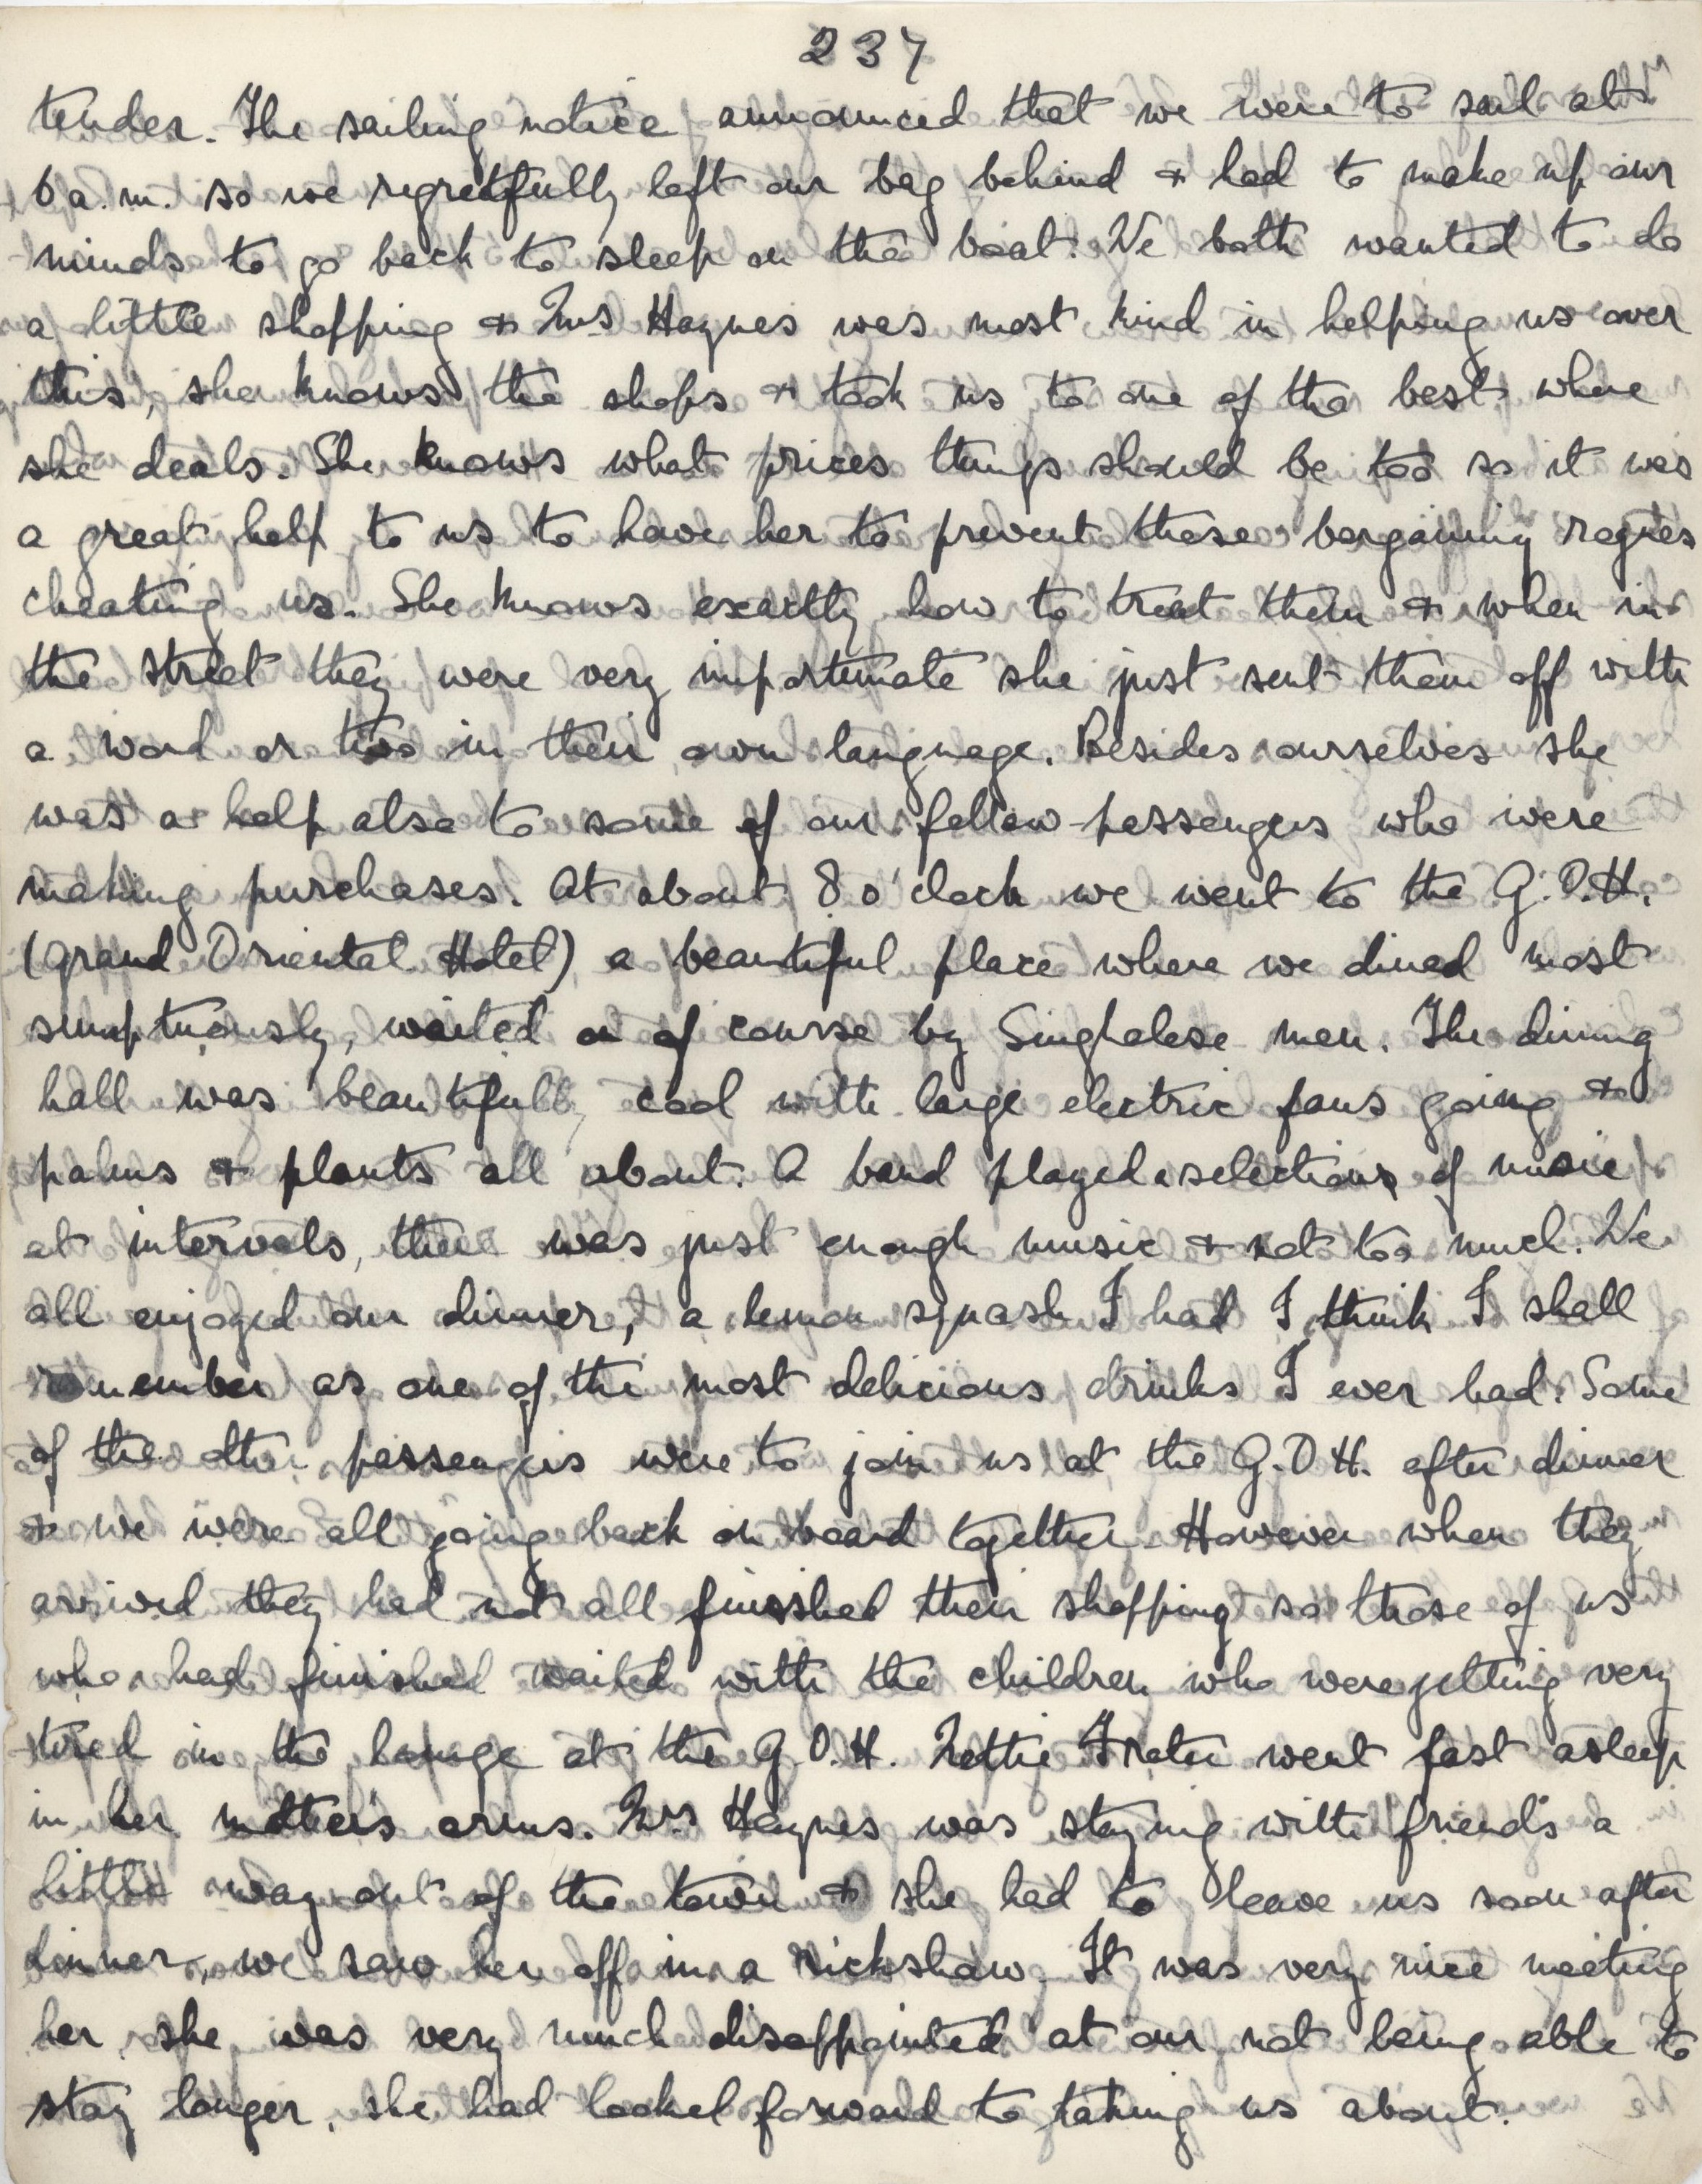 237
tender. The sailing notice announced that we were to sail at
6 a.m. so we regretfully left our bag behind & had to make up our
minds to go back to sleep on the boat. We both wanted to do
a little shopping & Mrs Haynes was most kind in helping us over
this, she knows the shops & took us to one of the best where
she deals. She knows what prices things should be too so it was
a great help to us to have her to prevent these bargaining rogues
cheating us. She knows exactly how to treat them & when in
the street they were very importunate she just sent them off with
a word or two in their own language. Besides ourselves she
was a help also to some of our fellow-passengers who were
making purchases. At about 8 o'clock we went to the G.O.H.
(Grand Oriental Hotel) a beautiful place where we dined most
sumptuously, waited on of course by Singhalese men. The dining
hall was beautifully cool with large electric fans going &
palms & plants all about. A band played selections of music
at intervals, there was just enough music & not too much. We
all enjoyed our dinner, a lemon squash I had I think I shall
remember as one of the most delicious drinks I ever had. Some
of the other passengers were to join us at the G.O.H. after dinner
& we were all going back on board together. However when they
arrived they had not all finished their shopping so those of us
who had finished waited with the children who were getting very
tired in the lounge at the G.O.H. Nettie Frater went fast asleep
in her mother's arms. Mrs Haynes was staying with friends a
little way out of the town & she had to leave us soon after
dinner, we saw her off in a rickshaw. It was very nice meeting
her, she was very much disappointed at our not being able to
stay longer, she had looked forward to taking us about.